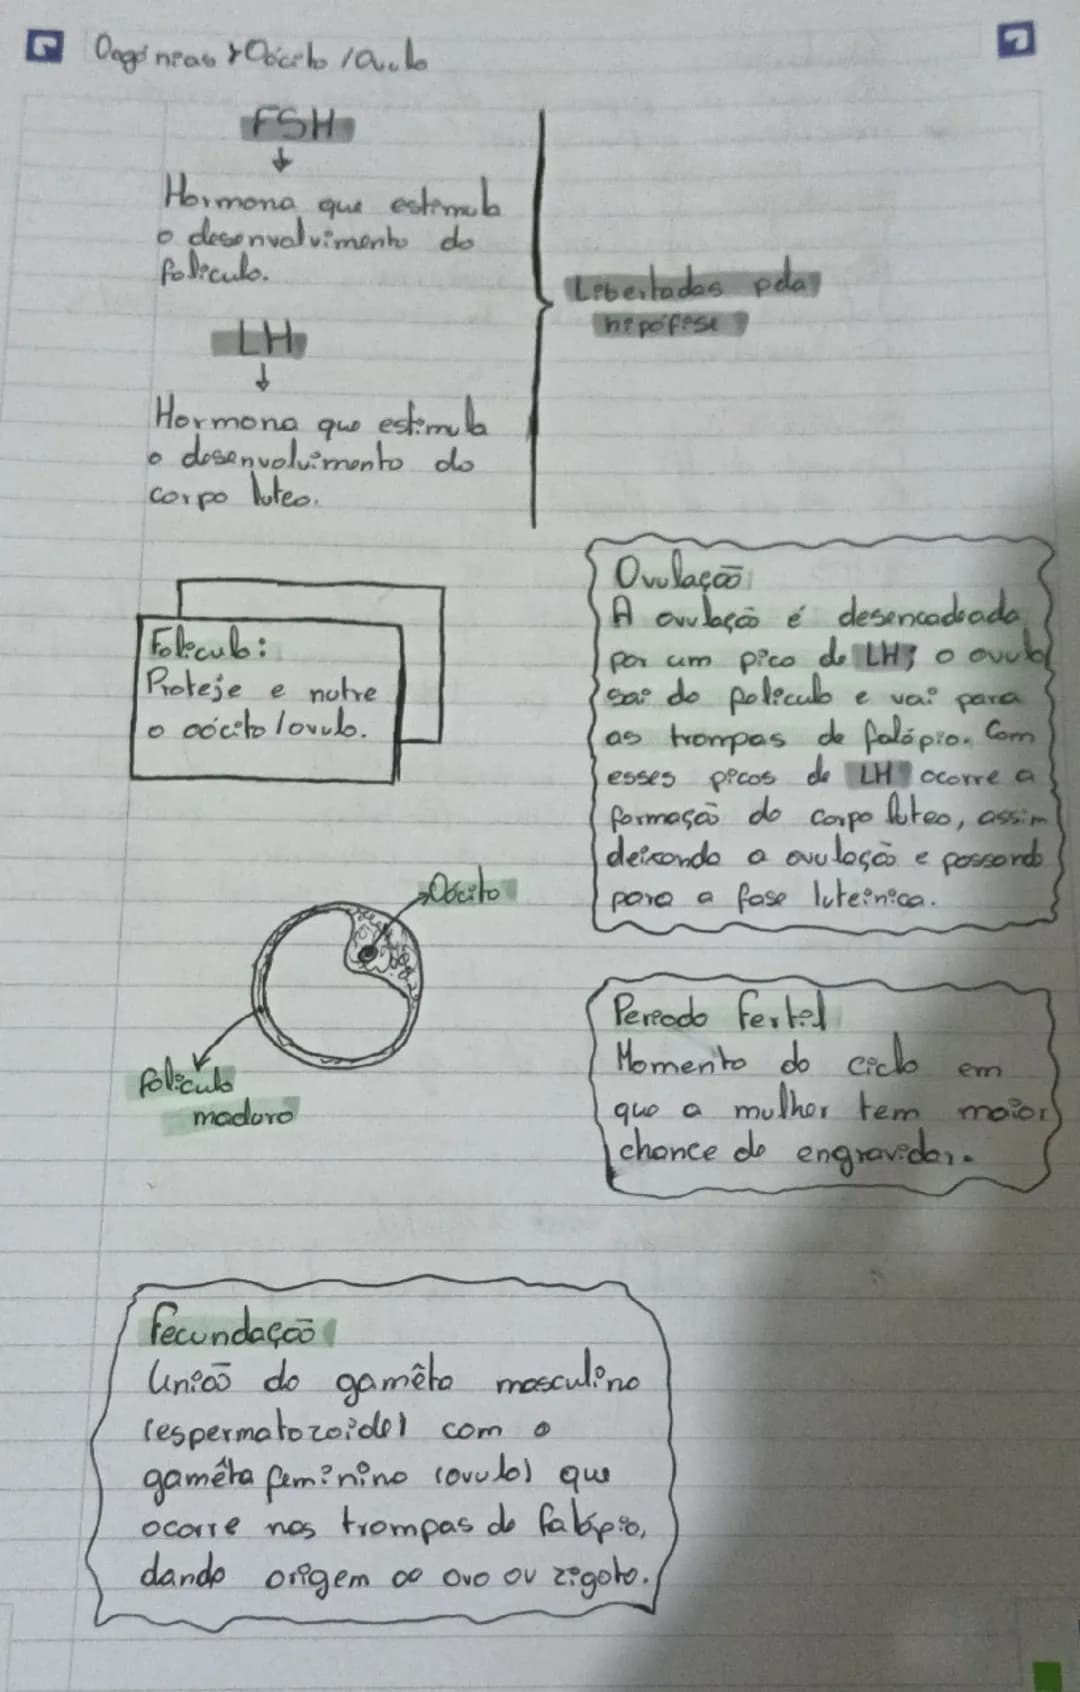 Oogónias > Oócito / Ovulo
FSH
Hormona que estimula
o desenvolvimento do
foliculo.
LH
Hormona que estimula
o desenvolvimento do
corpo luteo.
Libertadas pela
hipófise
Foliculo:
Proteje e nutre
o oócito/ovulo.
Oócito
foliculo
maduro
Ovulação
A ovulação é desencadeada
por um pico de LH; o ovulo
sai do foliculo e vai para
as trompas de falópio. Com
esses picos de LH ocorre a
formação do corpo luteo, assim
deixando a ovulação e passando
para a fase luteinica.
Periodo fertil
Momento do ciclo em
que a mulher tem maior
chance de engravidar.
fecundação
União do gamêta masculino
(espermatozoide) com o
gamêta feminino (ovulo) que
ocorre nas trompas de falópio,
dando origem ao ovo ou zigoto.